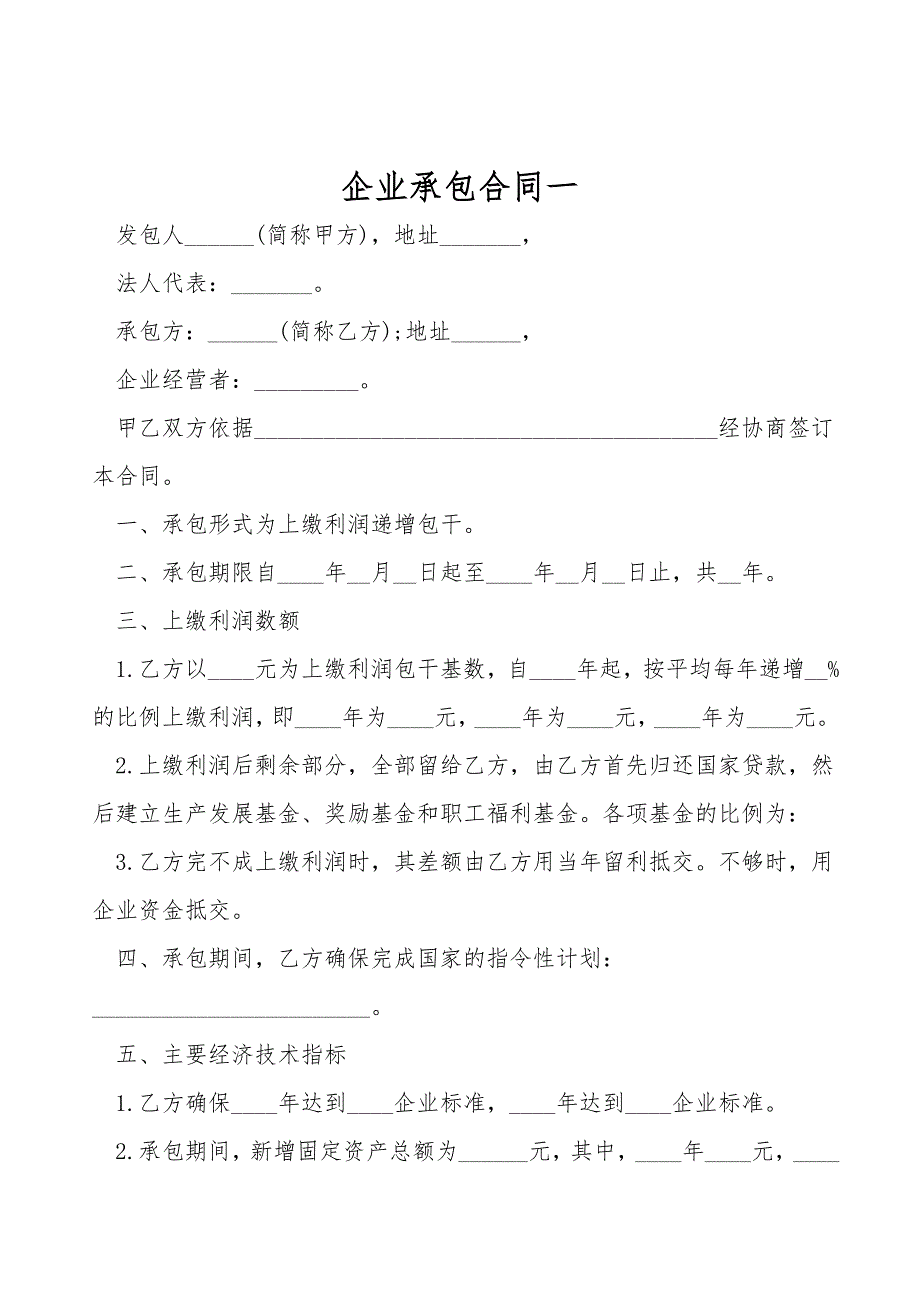 企业承包合同一
发包人______(简称甲方)，地址_______，
法人代表：_______。
承包方：______(简称乙方);地址______，
企业经营者：_________。
甲乙双方依据________________________________________经协商签订
本合同。
一、承包形式为上缴利润递增包干。
二、承包期限自____年__月__日起至____年__月__日止，共__年。
三、上缴利润数额
1.乙方以____元为上缴利润包干基数，自____年起，按平均每年递增__%
的比例上缴利润，即____年为____元，____年为____元，____年为____元。
2.上缴利润后剩余部分，全部留给乙方，由乙方首先归还国家贷款，然
后建立生产发展基金、奖励基金和职工福利基金。各项基金的比例为：
3.乙方完不成上缴利润时，其差额由乙方用当年留利抵交。不够时，用
企业资金抵交。
四、承包期间，乙方确保完成国家的指令性计划：
________________________。
五、主要经济技术指标
1.乙方确保____年达到____企业标准，____年达到____企业标准。
2.承包期间，新增固定资产总额为______元，其中，____年____元，____